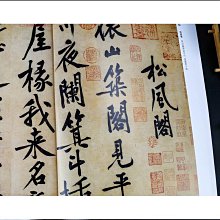 松風閣
依山築閣見平
川夜闌箕斗插
屋椽我来名